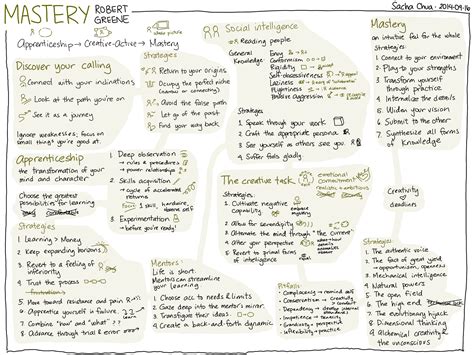 MASTERY ROBERT GREENE
Sacha Chua · 2014-09-16
Apprenticeship → Creative-Active → Mastery
Discover your calling
Connect with your inclinations
Look at the path you're on
See it as a journey
Ignore weaknesses; focus on small things you're good at.
Strategies
Return to your origins
Occupy the perfect niche
(narrow or connecting)
Avoid the false path
Let go of the past
Find your way back
Social intelligence
Reading people
General
Knowledge
Envy
Conformism
Rigidity
Self-obsessiveness
Laziness
Flightiness
Passive aggression
Strategies
1. Speak through your work
2. Craft the appropriate persona
3. See yourself as others see you
4. Suffer fools gladly
Mastery
an intuitive feel for the whole
Strategies
1. Connect to your environment
2. Play to your strengths
3. Transform yourself through practice
4. Internalize the details
5. Widen your vision
6. Submit to the other
7. Synthesize all forms of knowledge
Apprenticeship
the transformation of your mind and character
Choose the greatest possibilities for learning
Strategies
1. Learning > Money
2. Keep expanding horizons
3. Revert to a feeling of inferiority
4. Trust the process
5. Move toward resistance and pain
6. Apprentice yourself in failure.
7. Combine "how" and "what"
8. Advance through trial & error
1. Deep observation
→ rules & procedures
→ power relationships
2. Skills acquisition
→ cycle of accelerated returns
3. Experimentation
→ before you're ready!
Mentors:
Life is short.
Mentors can streamline your learning
1. Choose acc to needs & limits
2. Gaze deep into the mentor's mirror.
3. Transfigure their ideas.
4. Create a back-and-forth dynamic
The creative task
emotional commitment
realistic + ambitious
Strategies
1. Cultivate negative capability
embrace mystery
2. Allow for serendipity
3. Alternate the mind through "the current"
4. Alter your perspective
5. Revert to primal forms of intelligence
Creativity
deadlines
Pitfalls
Complacency → remind self
Conservatism → Creativity > Comfort
Dependency →
Impatience →
Grandiosity → perspective
Inflexibility → practice
Strategies:
1. The authentic voice
2. The fact of great yield
→ opportunism, openness
3. Mechanical intelligence
4. Natural powers
5. The open field
6. The high end
7. The evolutionary hijack
8. Dimensional thinking
9. Alchemical creativity & the unconscious